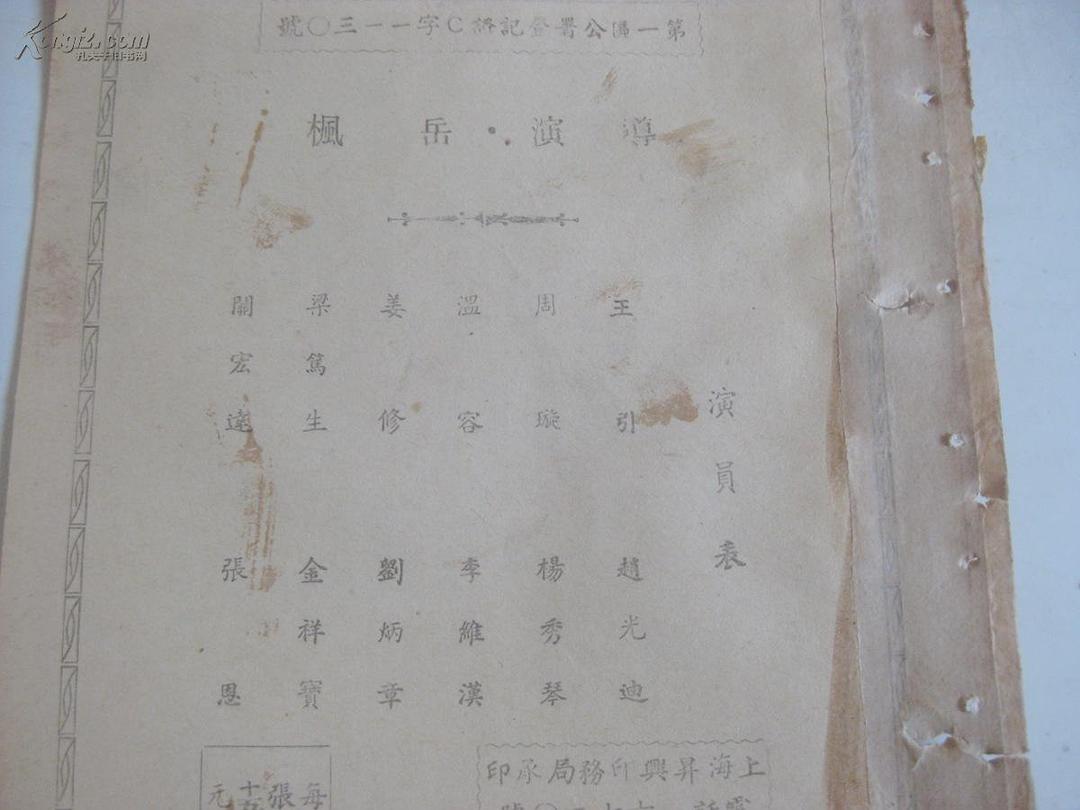 Kongfz.com
孔夫子旧书网
第一區公署登記證C字一一三〇號
導演・岳楓
演員表
王引　趙光迪
周璇　楊秀琴
溫容　李維漢
姜修　劉炳章
梁篤生　金祥寶
關宏達　張恩
上海昇興印務局承印
號
每張
元